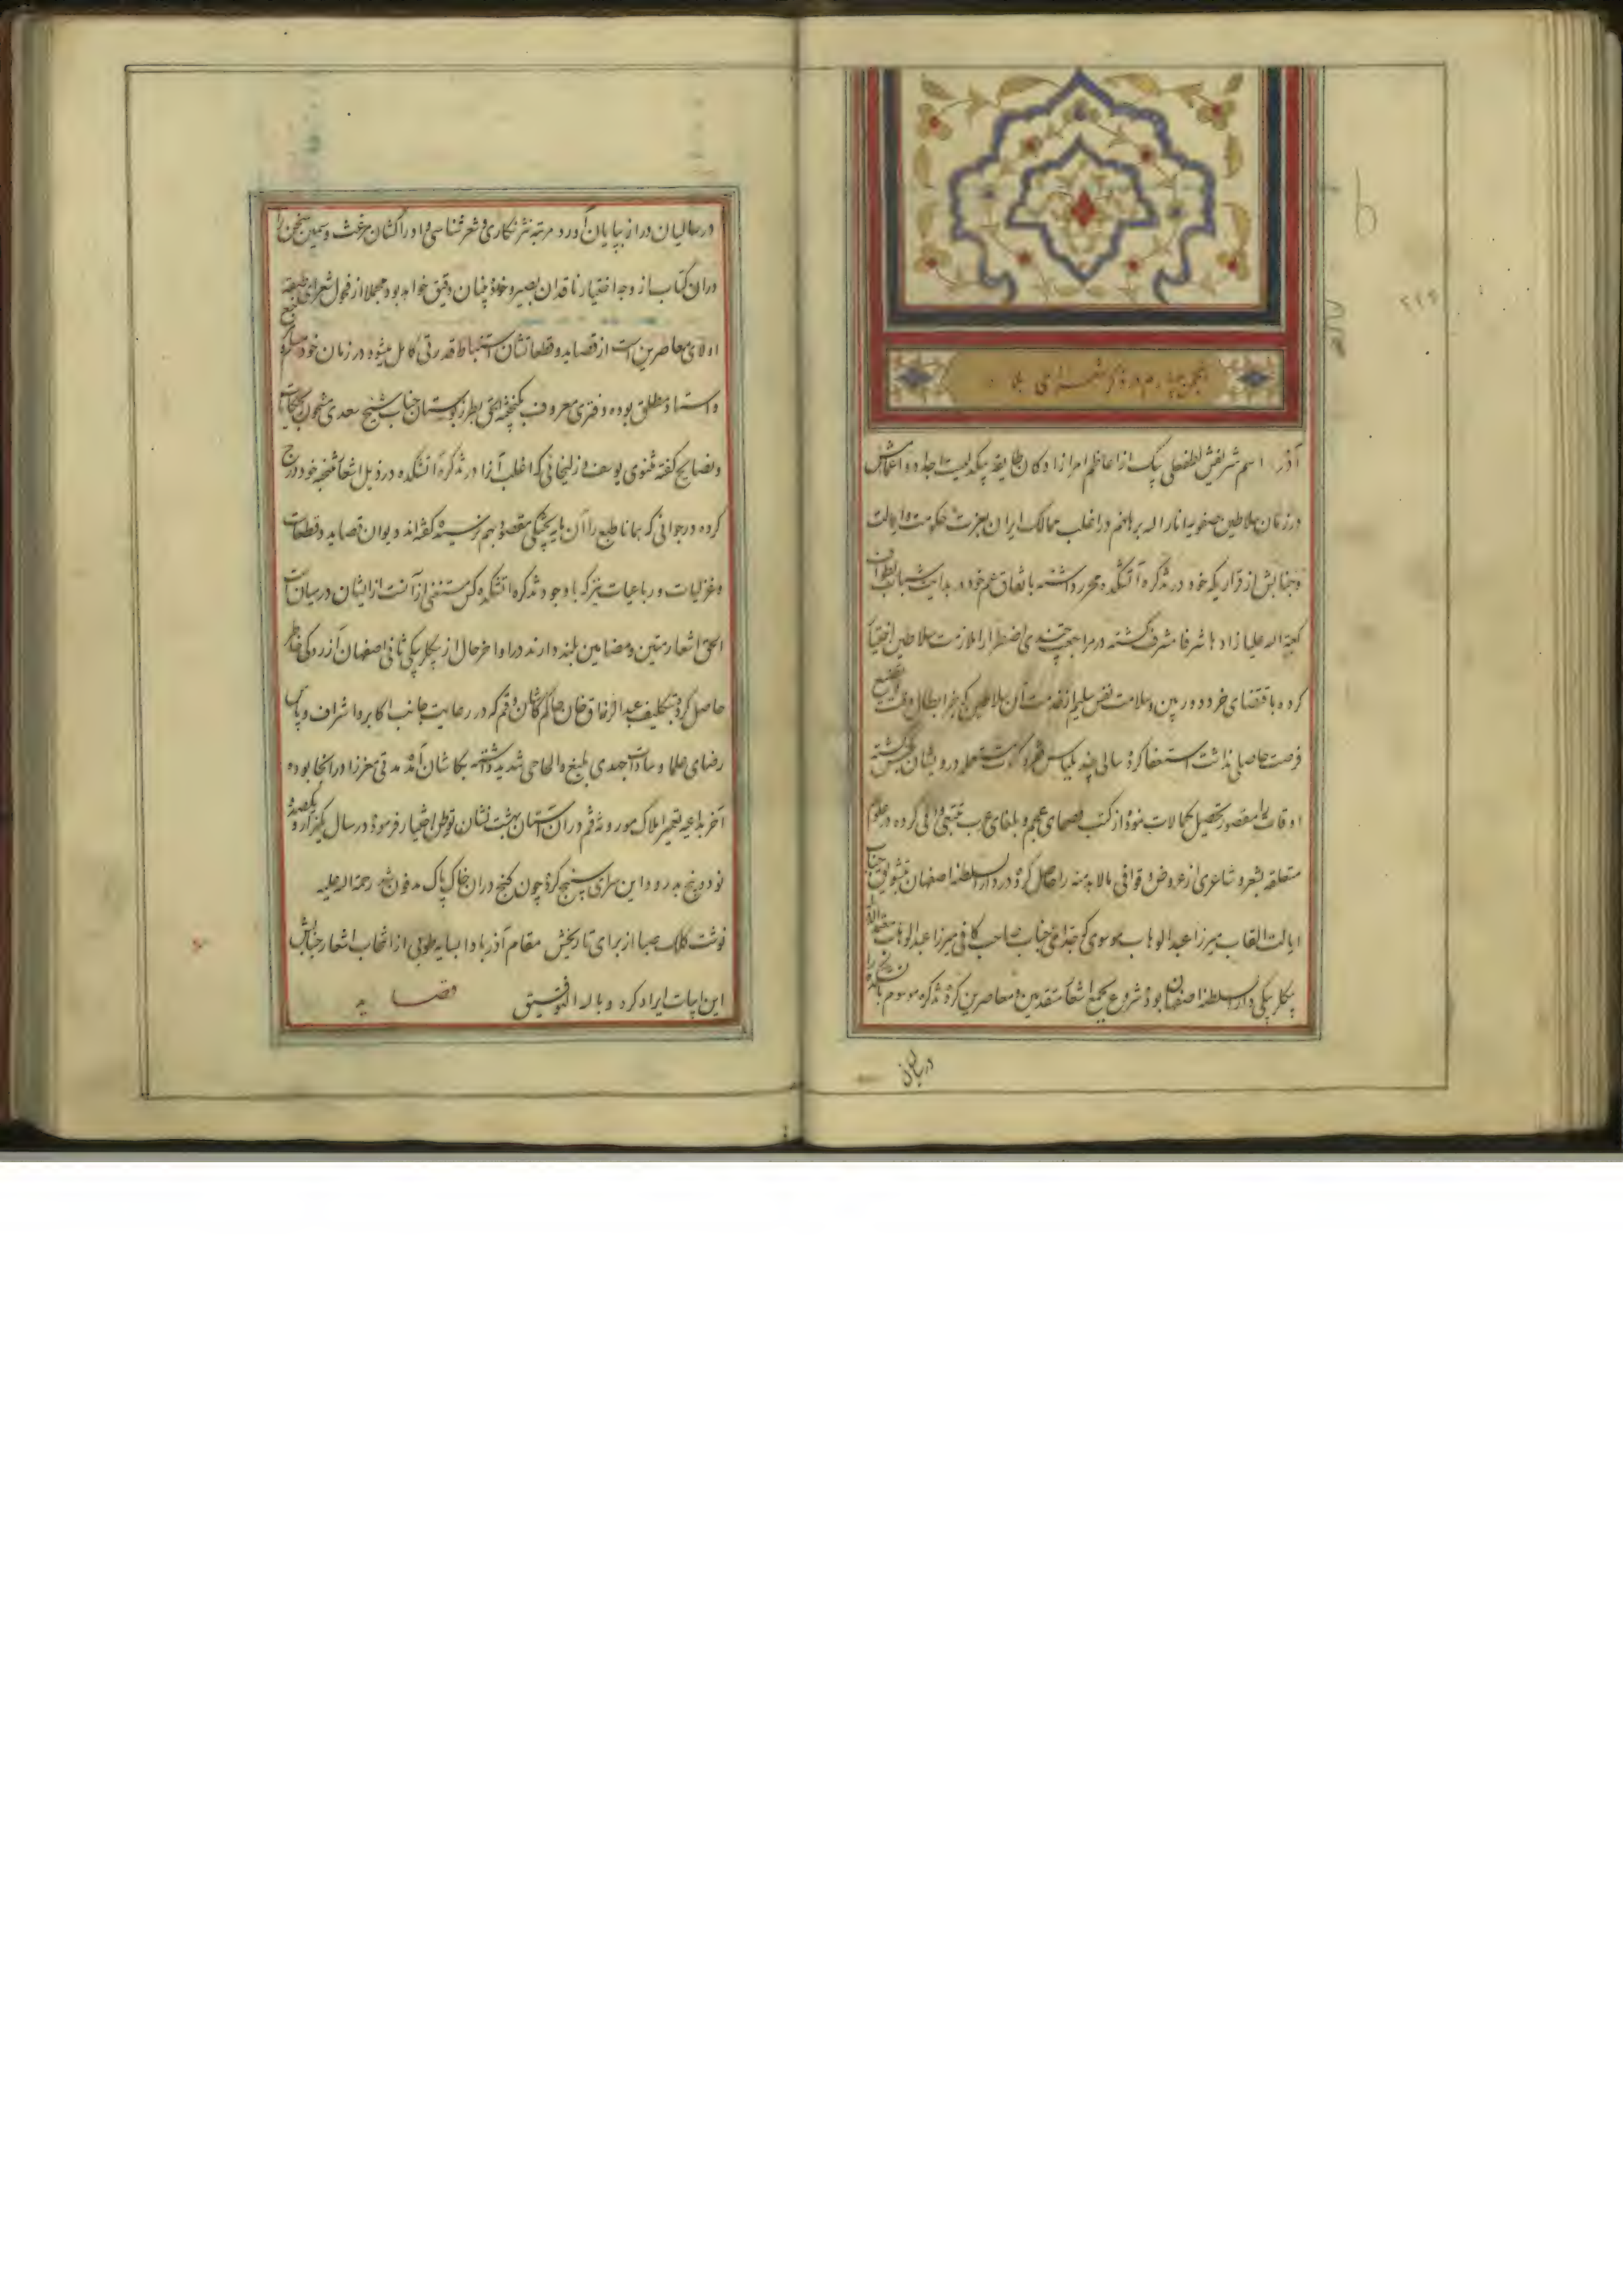 انجمن چهارم در ذکر شعرای بلاد
آذر اسم شریفش لطفعلی بیک از اعاظم امرازادکان طایفه بیکدلیست اجداد و اعمامش
در زمان سلاطین صفویه انار الله براهنهم در اغلب ممالک ایران بعزت حکومت و ایالت
و جنابش از قراریکه خود در تذکره آتشکده محرر داشته باتفاق عم خود در بدایت شباب بطواف
کعبه الله علیا زادها شرفا مشرف کشته در مراجعت چندی اضطرارا ملازمت سلاطین اختیار
کرده باقتضای خرد دوربین و سلامت نفس سلیم از خدمت آن سلاطین که بجز ابطال وقت و تضییع
فرصت حاصلی نداشت استعفا کرده سالی چند بلباس فقر و کسوت درویشان کشته
اوقات را مقصور تحصیل کمالات نموده از کتب فصحای عجم و بلغای عرب تتبعی وافی کرده در علوم
متعلقه بشعر و شاعری از عروض و قوافی مالابد منه را حاصل کرده در دار السلطنه اصفهان بتشویق جناب
ایالت القاب میرزا عبد الوهاب موسوی که جد امی جناب صاحب کافی میرزا عبد الوهاب معتمد الدوله
بیکلربیکی دار السلطنه اصفهان بوده شروع بجمع اشعار متقدمین و معاصرین کرده تذکره موسوم بآتشکده را
در سالیان
در سالیان دراز بپایان آورد مرتبه نثر نکاری و شعر شناسی او را کشان غث و سمین سخن را
در ان کتاب از وجه اختیار ناقدان بصیر و خود چنان دقیق خواهد بود مجملا از فحول شعرای طبقه
اولای معاصرین است از قصاید و قطعاتشان استنباط قدرتی کامل میشود در زمان خود
و استاد مطلق بوده دفتری معروف بکنجینه الحق بطرز بوستان جناب شیخ سعدی مشحون بحکایات
و نصایح کفته مثنوی یوسف و زلیخائی که اغلب آنرا در تذکره آتشکده در ذیل اشعار منتخبه خود درج
کرده در جوانی که همانا طبع را آن مایه پختکی مقصود بهم نرسیده کفته‌اند دیوان قصاید و قطعات
و غزلیات و رباعیات نیز که با وجود تذکره آتشکده کس مستغنی از آنست از ایشان در میان است
الحق اشعار متین و مضامین بلند دارند در اواخر حال از بیکلربیکی ثانی اصفهان آزردکی خاطر
حاصل کرده بتکلیف عبد الرزاق خان حاکم کاشان و قم که در رعایت جانب اکابر و اشراف و پاس
رضای علما و سادات جهدی بلیغ و الحاحی شدید داشته بکاشان آمد مدتی معززا در انجا بوده
آخر بداعیه تعمیر املاک موروثه قم در ان آستان بهشت نشان توطن اختیار فرموده در سال یکهزار و یکصد و
نود و پنج بدرود این سرای سپنج کرده چون کنج در ان خاک پاک مدفون شد رحمة الله علیه
نوشت کلک صبا از برای تاریخش مقام آذر بادا بسایه طوبی از انتخاب اشعار جنابش
این ابیات ایراد کرد و بالله التوفیق قصاید